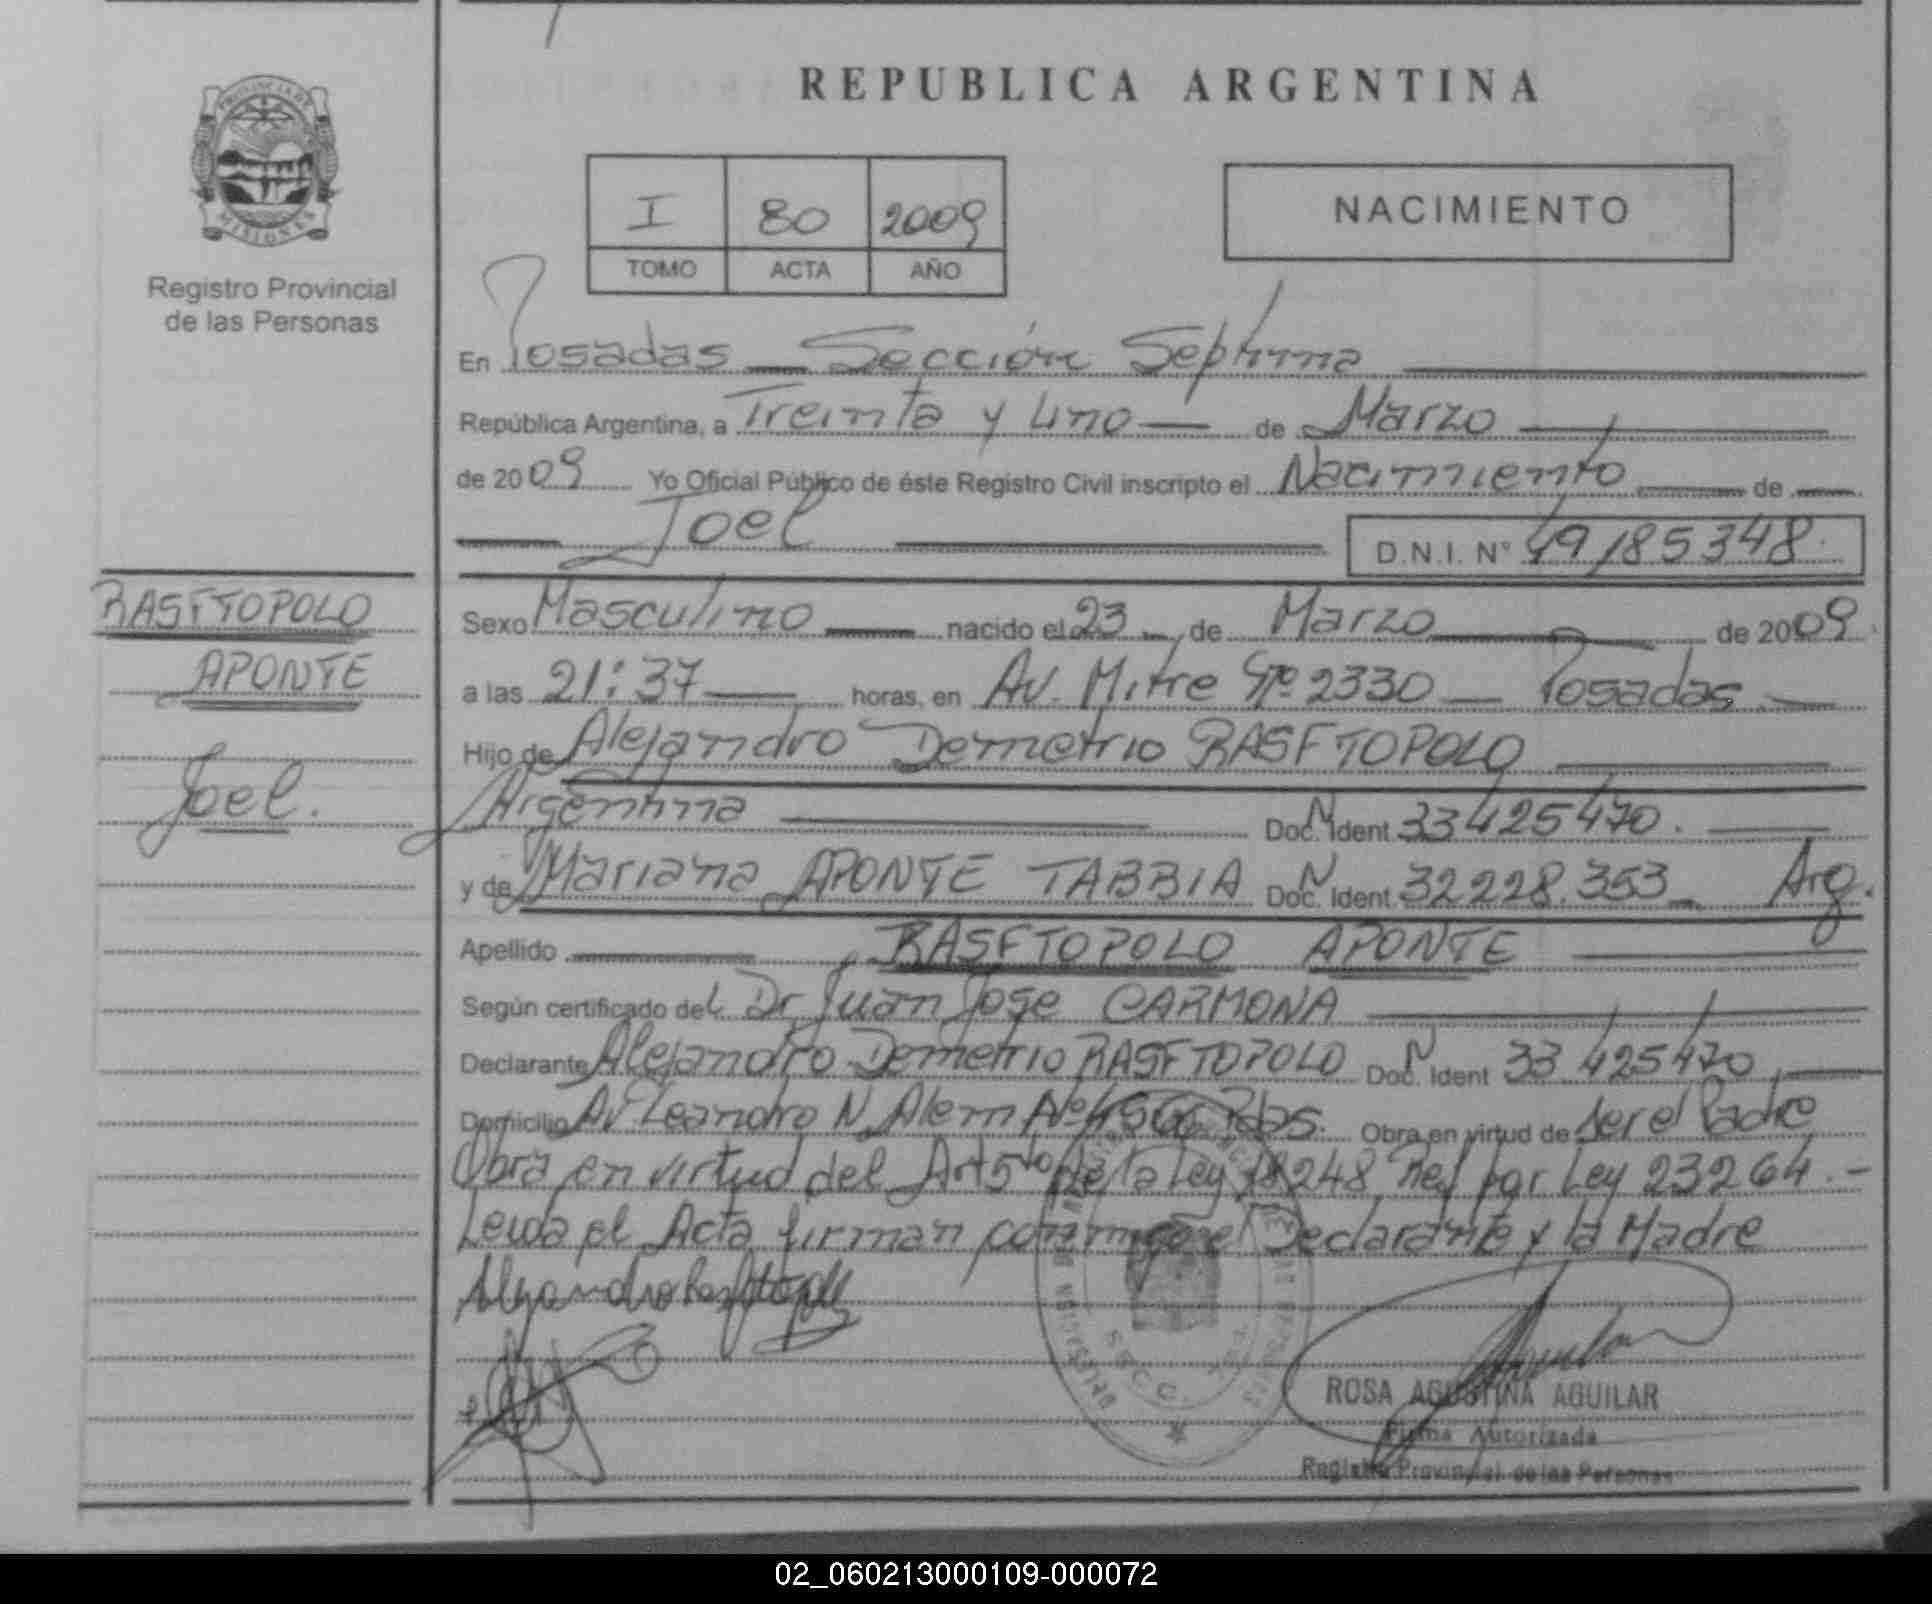 REPUBLICA ARGENTINA
PROVINCIA DE
MISIONES
Registro Provincial
de las Personas
I 80 2009
TOMO ACTA AÑO
NACIMIENTO
En Posadas Sección Septima
República Argentina, a Treinta y Uno de Marzo
de 2009 Yo Oficial Público de éste Registro Civil inscripto el Nacimiento de
Joel D.N.I. N° 49185348
RASFTOPOLO
APONTE
Joel.
Sexo Masculino nacido el 23 de Marzo de 2009
a las 21:37 horas, en Av. Mitre Nº 2330 Posadas
Hijo de Alejandro Demetrio RASFTOPOLO
Argentina Doc. Ident 33425470.
y de Mariana APONTE TABBIA Doc. Ident 32228.353 Arg.
Apellido RASFTOPOLO APONTE
Según certificado del Dr Juan Jose CARMONA
Declarante Alejandro Demetrio RASFTOPOLO Doc. Ident 33.425470
Domicilio Av Leandro N. Alem Pdas. Obra en virtud de ser el Padre
Obra en virtud del Art 5to de la Ley 18248 Ref por Ley 23264.-
Leida el Acta firman conmigo el Declarante y la Madre
ROSA AGUSTINA AGUILAR
Firma Autorizada
Registro Provincial de las Personas
02_060213000109-000072